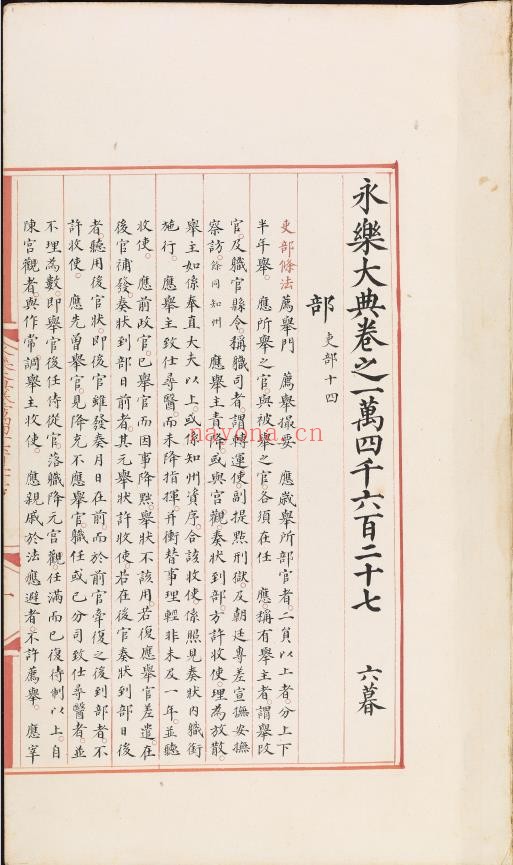 永樂大典卷之一萬四千六百二十七 六暮
部 吏部十四
吏部條法 薦舉門 薦舉撮要 應歲舉所部官者二負以上者分上下
半年舉 應所舉之官與被舉之官各須在任 應稱有舉主者謂舉改
官及職官縣令稱職司者謂轉運使副提㸃刑獄及朝廷專差宣撫安撫
察訪餘同知州 應舉主責降或與宮觀奏狀到部方許收使理為放散
舉主如係奉直大夫以上或係知州資序合該收使係照見奏狀内職銜
施行 應舉主致仕尋醫而未降指揮并衝替事理輕非未及一年並聽
收使 應前政官已舉官而因事降黜舉狀不該用若復應舉官差遣在
後官補發奏狀到部日前者其元舉狀許收使若在後官奏狀到部日後
者聽用後官狀即後官雖發奏月日在前而於前官牽復之後到部者不
許收使 應先曾舉官見降充不應舉官職任或已分司致仕尋醫者並
不理為數即舉官後任侍從官落職降元官觀任滿而已復待制以上自
陳宮觀者與作常調舉主收使 應親戚於法應避者不許薦舉 應宰
nayona.cn